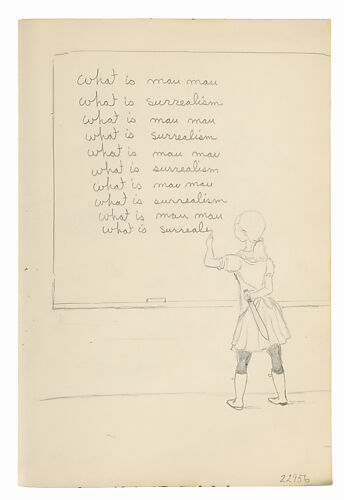 what is mau mau
what is surrealism
what is mau mau
what is surrealism
what is mau mau
what is surrealism
what is mau mau
what is surrealism
what is mau mau
what is surreale
22956